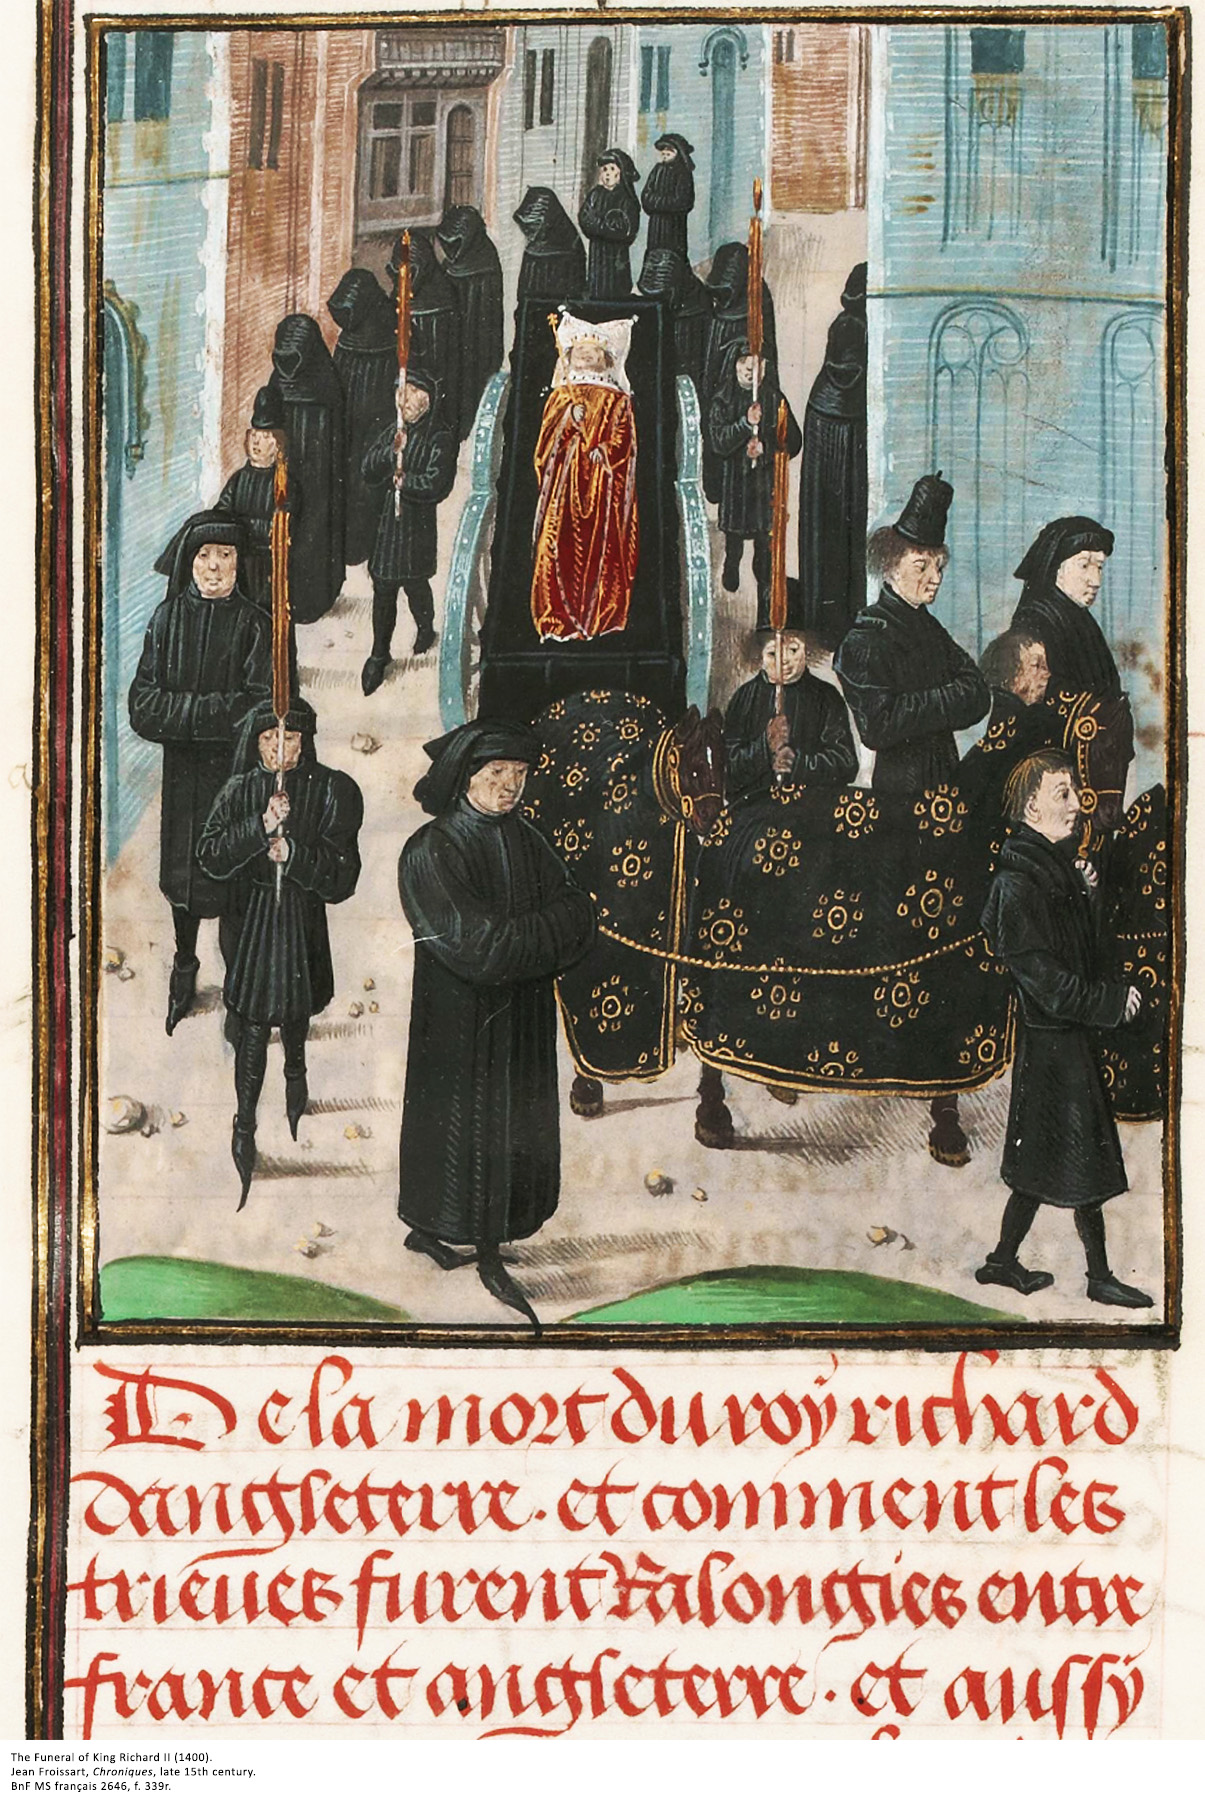 De la mort du roy richard
dangleterre. et comment les
trieues furent Ralongies entre
france et angleterre. et aussy
The Funeral of King Richard II (1400).
Jean Froissart, Chroniques, late 15th century.
BnF MS français 2646, f. 339r.